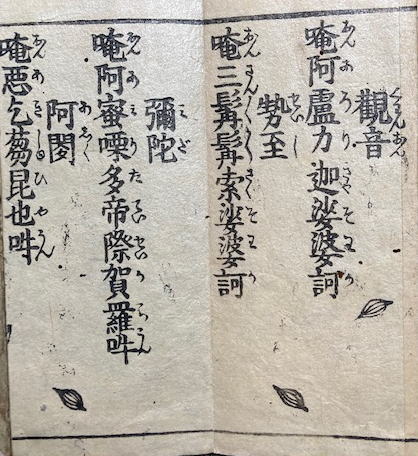 觀音
唵阿盧力迦娑婆訶
勢至
唵三髯髯索娑婆訶
彌陀
唵阿蜜㗚多帝際賀羅吽
阿閦
唵惡乞蒭昆也吽